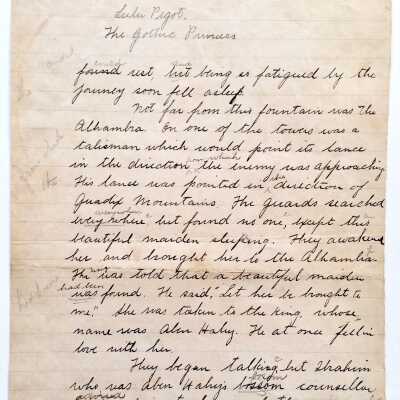 Lulu Pigot.
The Gothic Princess
found rest, but being so fatigued by the
journey soon fell asleep
Not far from this fountain was the
Alhambra. On one of the towers was a
talisman which would point its lance
in the direction from which the enemy was approaching
His lance was pointed in the direction of
Guadix Mountains. The guards searched
everywhere, but found no one, except this
beautiful maiden sleeping. They awakened
her and brought her to the Alhambra.
The was told that a beautiful maiden
had been
was found. He said, "Let her be brought to
me." She was taken to the king, whose
name was Aben Habuz. He at once fell in
love with her
They began talking, but Ibrahim
bosom
who was Aben Habuz's bossom counsellor